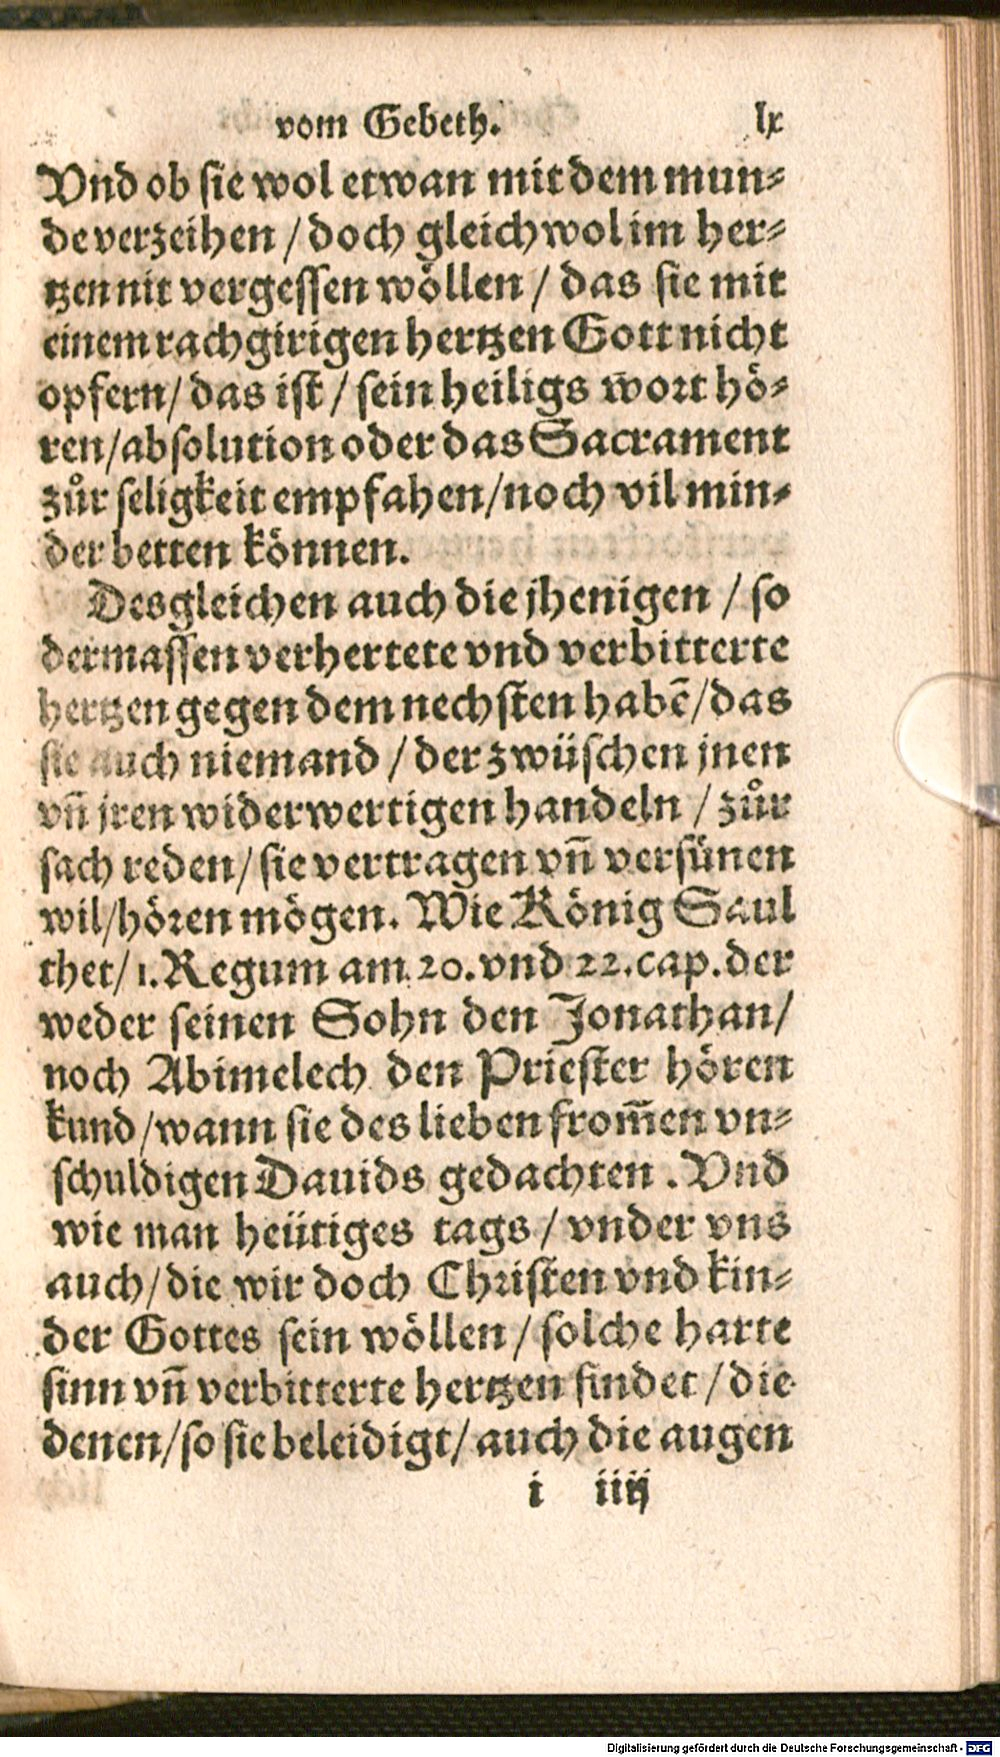 vom Gebeth. lx
Vnd ob sie wol etwan mit dem mun⸗
de verzeihen / doch gleichwol im her⸗
tzen nit vergessen wöllen / das sie mit
einem rachgirigen hertzen Gott nicht
opfern / das ist / sein heiligs wort hö⸗
ren / absolution oder das Sacrament
zůr seligkeit empfahen / noch vil min⸗
der betten können.
Desgleichen auch die jhenigen / so
dermassen verhertete vnd verbitterte
hertzen gegen dem nechsten habē / das
sie auch niemand / der zwüschen jnen
vn̄ jren widerwertigen handeln / zůr
sach reden / sie vertragen vn̄ versünen
wil / hören mögen. Wie König Saul
thet / 1. Regum am 20. vnd 22. cap. der
weder seinen Sohn den Jonathan /
noch Abimelech den Priester hören
kund / wann sie des lieben from̄en vn⸗
schuldigen Dauids gedachten. Vnd
wie man heütiges tags / vnder vns
auch / die wir doch Christen vnd kin⸗
der Gottes sein wöllen / solche harte
sinn vn̄ verbitterte hertzen findet / die
denen / so sie beleidigt / auch die augen
i iiij
Digitalisierung gefördert durch die Deutsche Forschungsgemeinschaft - DFG